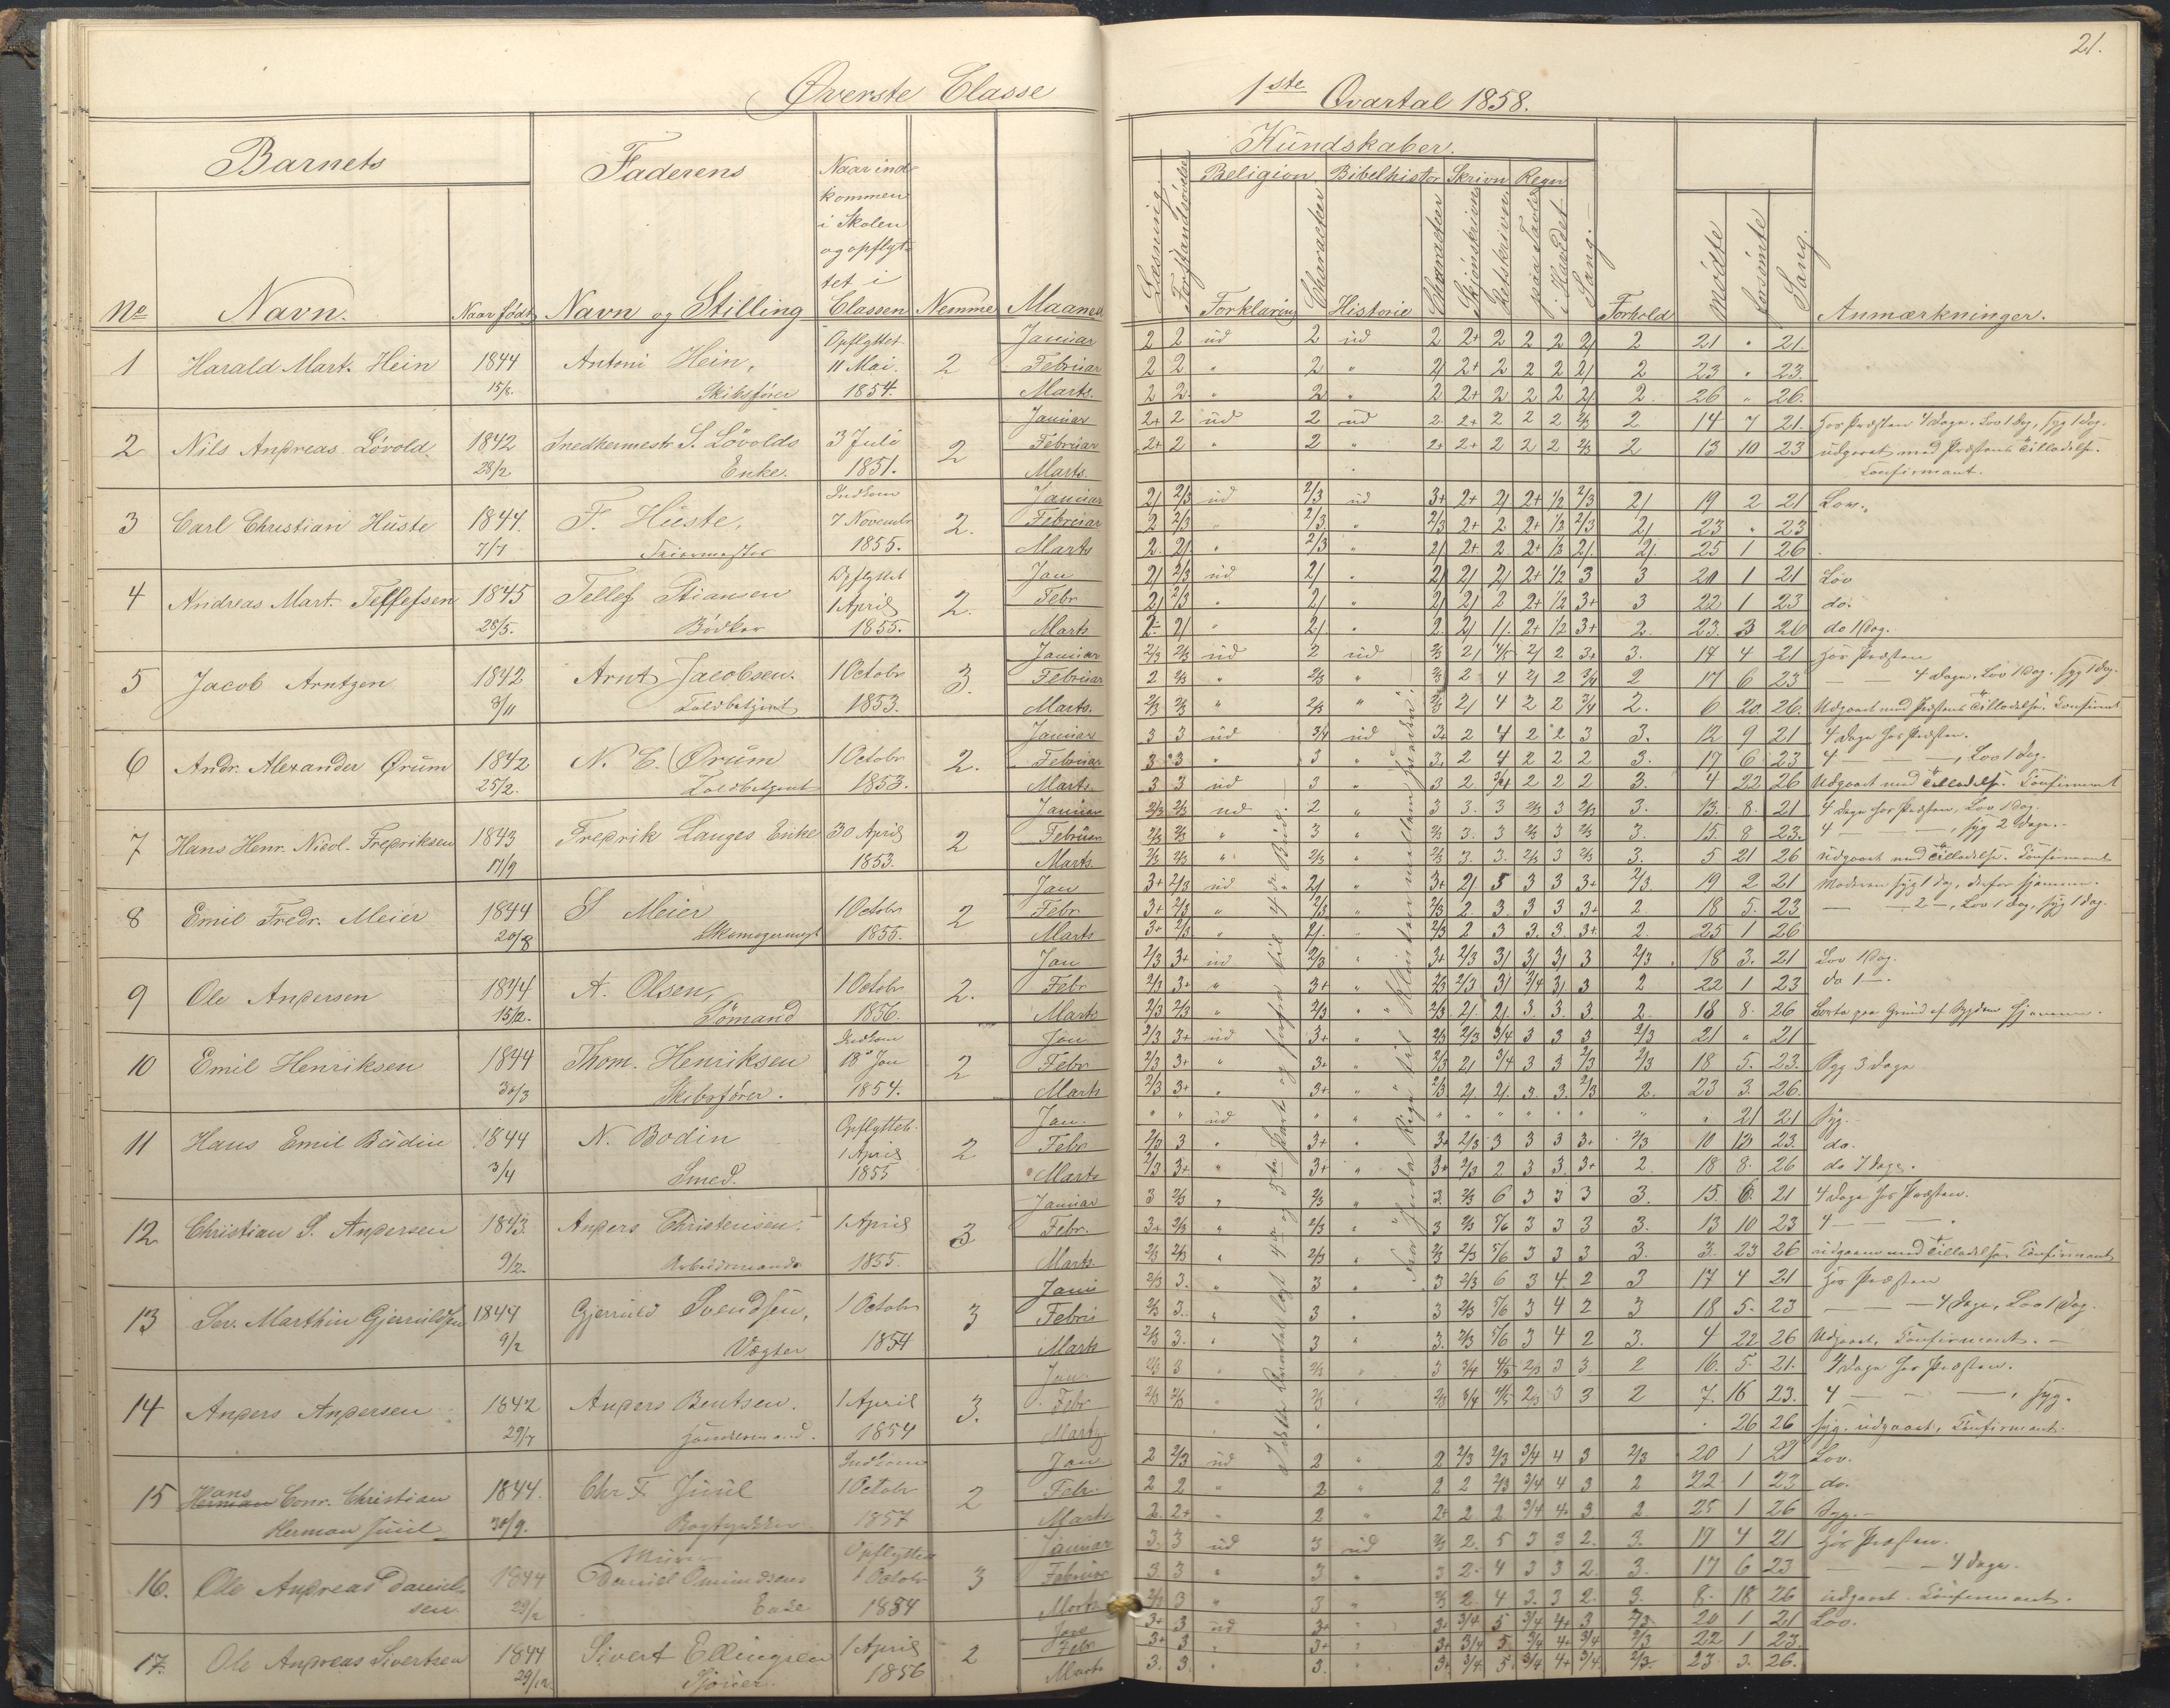 21.
Øverste Classe
1ste Qvartal 1858.
Barnets
Faderens
Naar ind-
kommen
i Skolen
og opflyt-
tet i
Classen
No
Navn.
Naar født
Navn og Stilling
Nemme
Maaned
Kundskaber.
Religion Bibelhistor Skrivn Regn
Læsning.
Forstandsøvelse
Forklaring
Characteer
Historie
Characteer
Skjönskrivn
Retskrivn
paa Tavle
i Hovedet
Sang.
Forhold
mødte
forsømte
Sang.
Anmærkninger.
1 Harald Mart. Hein 1844 15/8. Antoni Hein, Skibsfører Opflyttet 11 Mai. 1854. 2
Januar 2 2 ud 2 ud 2 2+ 2 2 2 2/ 2 21 " 21.
Februar 2 2 " 2 " 2/ 2+ 2 2 2 2/ 2 23 " 23.
Marts. 2 2. " 2 " 2 2+ 2 2 2 2/ 2. 26 " 26.
2 Nils Andreas Lövold. 1842 28/2 Snedkermestr S. Lövolds Enke. 3 Juli 1851. 2
Januar 2+ 2 ud 2 ud 2 2+ 2 2 2 2/3 2 14 7 21. Hos Præsten 4 Dage. Lov 1 Dag, syg 1 Dag.
Februar 2+ 2 " 2 " 2+ 2+ 2 2 2 2/3 2 13 10 23 udgaaet med Præstens Tilladelse.
Marts. Confirmant.
3 Carl Christian Huste 1844. 7/7 F. Huste, Indkom 7 Novembr 1855. 2.
Januar 2/ 2/3 ud 2/3 ud 3+ 2+ 2/ 2+ 1/2 2/3 2/ 19 2 21 Lov.
Februar 2 2/3 " 2/3. " 2/3 2+ 2 2+ 1/2 2/3 2/ 23 " 23
Marts 2. 2/. " 2/3 " 2/ 2+ 2 2+ 1/2 2/. 2/. 25 1 26
4 Andreas Mart. Tellefsen 1845 28/5. Tellef Stiansen Bödker Opflyttet 1 April 1855. 2.
Jan 2/ 2/3 ud 2/ " 2/ 2/ 2/ 2+ 1/2 3 3 20 1 21 Lov
Febr 2/ 2/3 " 2/ " 2/ 2/ 2 2+ 1/2 3+ 3 22 1 23 do.
Marts 2. 2/ " 2/ " 2. 2/ 1/. 2+ 1/2 3+ 2. 23. 3 26 do 1 Dag.
5 Jacob Arntzen 1842 8/11 Arnt Jacobsen. Toldbetjent 1 Octobr 1853. 3.
Januar 2/3 2/3 ud 2 ud 2/3 2/ 4/5 2/ 2 3+ 3. 17 4 21 Hos Præsten
Februar 2 2/3 " 2/3 " 2/3 2 4 2/ 2 3/4 2 17 6 23 — — 4 Dage. Lov 1 Dag. syg 1 Dag.
Marts. 2/3 2/3 " 2/3 " 2/3 2/ 4 2 2 3/4 2. 6 20. 26. Udgaaet med Præstens Tilladelse. Confirmant
6 Andr. Alexander Ørum 1842 25/2. N. C. Ørum Toldbetjent 1 Octobr 1853. 2.
Januar 3 3 ud 3/4 ud 3+ 2 4 2 2 3 3. 12 9 21 4 Dage hos Præsten.
Februar 3 3 " 3 " 3. 2 4 2 2 2 3. 17 6 23 4 — — —, Lov 1 Dag.
Marts. 3 3 ud 3 " 3 2 3/4 2 2 2 3. 4 22 26 Udgaaet med Tilladelse. Confirmant
7 Hans Henr. Nicol. Fredriksen 1843 17/9 Fredrik Langes Enke 30 April 1853. 2
Januar 2/3 2/3 ud 2 " 3 3. 3 2/3 3 2/3 3. 13. 8. 21 4 Dage hos Præsten, Lov 1 Dag.
Februar 2/3 2/3 " 3 " 2/3 3. 3 2/3 3 2/3 3. 15. 8 23. 4 — — —, syg 2 Dage.
Marts. 2/3 2/3 " 2/3 " 2/3 3. 3. 2/3 3 2/3 3. 5 21 26 Udgaaet med Tilladelse. Confirmant
8 Emil Fredr. Meier 1844 20/8 S Meier Skomagermest 1 Octobr 1855. 2
Jan 3+ 2/3 ud 2/ " 3+ 2/ 5 3 3 3+ 2/3. 19 2 21 Moderen syg 1 Dag, derfor hjemme.
Febr 3+ 2/3 " 2/3 " 2/3 2. 3. 3 3 3+ 2. 18 5. 23 — — 2 —, Lov 1 Dag, syg 1 dag.
Marts 3+ 2/3 " 2/. " 2/3 2 3 3. 3. 3+ 2. 25 1 26
9 Ole Andersen 1844 15/2. A. Olsen, Sömand 1 Octobr 1856. 2.
Jan 2/3 3+ ud 2/3 " 3+ 2/3 3/ 3/ 3/ 3 2/3. 18 3. 21 Lov 1 Dag.
Febr 2/3 3+ " 3+ " 2/3 2/3 3/ 3/4 3/ 3 2 22 1 23 do 1 —.
Marts 2/3 2/3 " 2/3 " 2/3 2/. 2/. 3. 3. 3. 2. 18 8. 26 Borte paa Grund af Sygdom hjemme.
10 Emil Henriksen 1844 30/3 Thom. Henriksen Skibsfører. Indkom 18 Jan 1854. 2
Jan 2/3 3+ ud 3+ " 2/3 2/3 3/4 3 3 3 2/3 21 " 21
Febr 2/3 3+ " 3+ " 2/3 2/ 3/4 3 3 2/3 2/3 18 5. 23. Syg 3 Dage
Marts 2/3 3+ " 3+ " 2/3 2/ 2/. 3. 3. 2/3 2. 23 3. 26.
11 Hans Emil Bodin 1844 3/4 N. Bodin Smed. Opflyttet 1 April 1855 2
Jan. " " ud " " " " " " " " " " 21 21 Syg.
Febr 2/3 3 " 3+ " 3+ 2/3 3 3 3 3+ 2/3 10 13 23. do.
Marts 2/3 3+ " 3+ " 3+ 2/3 2 3 3. 3+ 2. 18 8. 26 do 7 Dage.
12 Christian S. Andersen 1843. 9/2. Anders Christensen. Arbeidsmand 1 April 1855. 3
Januar 3 2/3 " 2/3 " 3. 2/3 6 3 3 3 3. 15. 6. 21 4 Dage hos Præsten.
Febr. 3+ 2/3 " 2/3 " 3 2/3 5/6 3 3 3 3. 13 10 23 4 — — —.
Marts. 2/3 2/3 " 2/3 " 2/3 2/3 5/6 3 3 3 3. 3. 23 26 udgaaet med Tilladelse Confirmant
13 Sev. Marthin Gjeruldsen 1844 9/2 Gjeruld Svendsen, Vægter 1 Octobr 1854 3
Janu 2/3 3. " 3 " 3 2/3 6 3 4. 2 3 17 4 21 Hos Præsten
Febru 2/3 3. " 3 " 3 2/3 5/6 3 4 2 3 18 5. 23 — — — 4 Dage, Lov 1 Dag.
Marts 2/3 3. " 3 " 3. 2/3 5/6 3 4 2 3. 4 22 26 Udgaaet, Confirmant. —
14 Anders Andersen 1842 29/7 Anders Bentsen. 1 April 1854 3.
Jan. 2/3 3 " 2/3 " 3 3/4 4/5 2/3 3 3. 2 16. 5. 21. 4 Dage hos Præsten.
Febr 2/3 2/3 " 2/3 " 2/3 3/4 4/5 2/3 3 3 2 7. 16 23. 4 — — —, syg.
Marts 26 26 syg. udgaaet, Confirmant.
15 Hans Conr. Christian Herman Juul 1844. 30/9. Chr F. Juul Bogtrykker Indkom 1 Octobr 1857 2
Jan 2 2/3 ud 2 " 2 2/3 2/3 3/4 4 3 2/3 20 1 21 Lov.
Febr. 2 2 " 2 " 2 2 2/3 3/4 4 3 2 22 1 23 do.
Marts 2. 2+ " 2 " 2+ 2 2 3/4 4. 3 2 25 1 26 Syg. —
16. Ole Andreas Daniel- sen 1844 29/2 Daniel Omundsens Enke Opflyttet 1 Octobr 1854 3
Januar 3. 3 ud 3 ud 2/3 2. 5 3 3 2. 3. 17 4 21 Hos Præsten.
Februar 3 3 " 3 " 3 2. 4 3 3 2. 3. 17 6 23 — — 4 Dage.
Marts 2/3 3 " 3 " 2/3 2 4 3. 3 2. 3. 8. 18 26 udgaaet. Confirmant.
17. Ole Andreas Sivertsen 1844 29/12 Sivert Ellingsen 1 April 1856 2
Jan 3+ 3 ud 3+ " 3+ 3/4 5 3/4 4+ 3 2/3 20 1 21 Lov.
Febr 3+ 3 " 3+ " 3+ 3/4 5. 3/4 4+ 3/4 2/3 22 1 23.
Marts 3. 3. " 3. " 3+ 3/4 5. 3/4 4+ 3/4. 2/3. 23 3. 26.